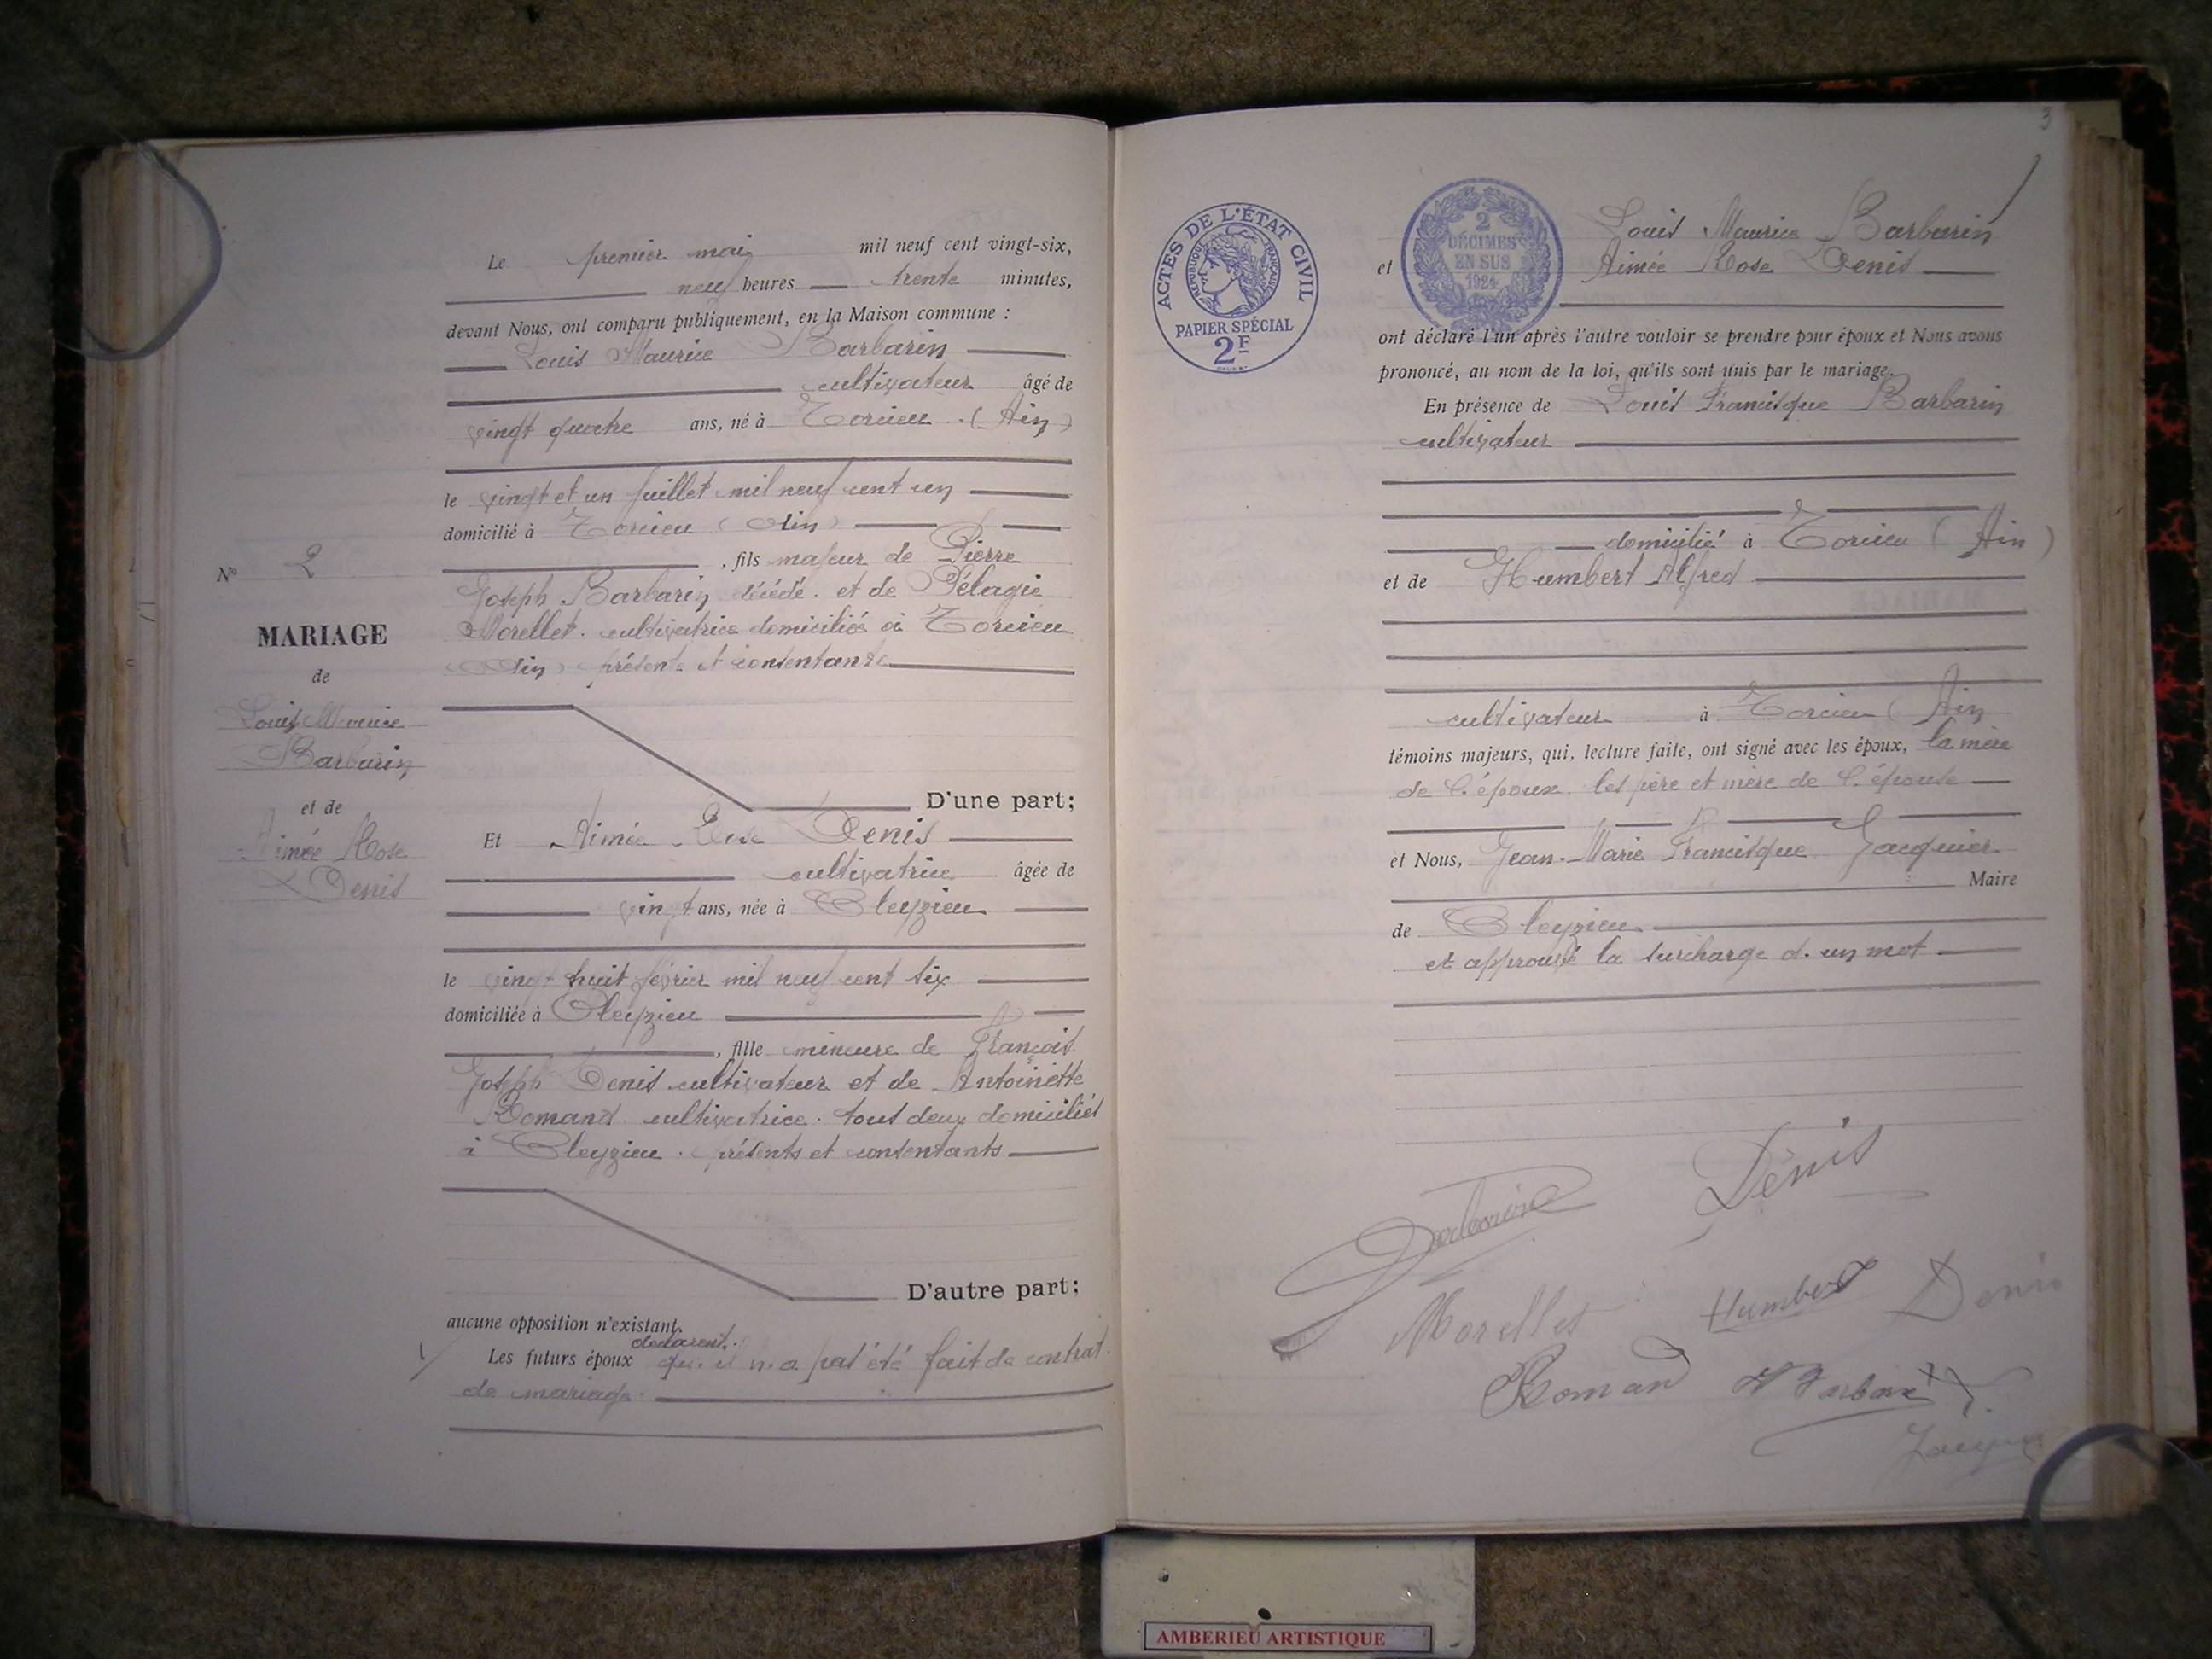 Le premier mai mil neuf cent vingt-six,
neuf heures trente minutes,
devant Nous, ont comparu publiquement, en la Maison commune :
Louis Maurice Barbarin
cultivateur âgé de
vingt quatre ans, né à Torcieu (Ain)
le vingt et un juillet mil neuf cent un
domicilié à Torcieu (Ain)
, fils majeur de Pierre
Joseph Barbarin décédé. et de Pélagie
Morellet. cultivatrice domiciliée à Torcieu
(Ain) présente et consentante
D'une part;
Et Aimée Rose Denis
cultivatrice âgée de
vingt ans, née à Cleyzieu
le vingt huit février mil neuf cent six
domiciliée à Cleyzieu
, fille mineure de François
Joseph Denis cultivateur et de Antoinette
Romand cultivatrice. tous deux domiciliés
à Cleyzieu. présents et consentants
D'autre part;
aucune opposition n'existant
déclarent
Les futurs époux qu'il n'a pas été fait de contrat
de mariage.
N° 2
MARIAGE
de
Louis Maurice
Barbarin
et de
Aimée Rose
Denis
3
ACTES DE L'ÉTAT CIVIL
RÉPUBLIQUE FRANÇAISE
PAPIER SPÉCIAL
2F
2
DÉCIMES
EN SUS
1924
Louis Maurice Barbarin
et Aimée Rose Denis
ont déclaré l'un après l'autre vouloir se prendre pour époux et Nous avons
prononcé, au nom de la loi, qu'ils sont unis par le mariage.
En présence de Louis Francisque Barbarin
cultivateur
domicilié à Torcieu (Ain)
et de Humbert Alfred
cultivateur à Torcieu (Ain
témoins majeurs, qui, lecture faite, ont signé avec les époux, la mère
de l'époux. les père et mère de l'épouse
et Nous, Jean-Marie Francisque Jacquier
Maire
de Cleyzieu
et approuvé la surcharge d'un mot
Denis
Barbarin
Morellet Humbert Denis
Romand Barbarin
AMBERIEU ARTISTIQUE